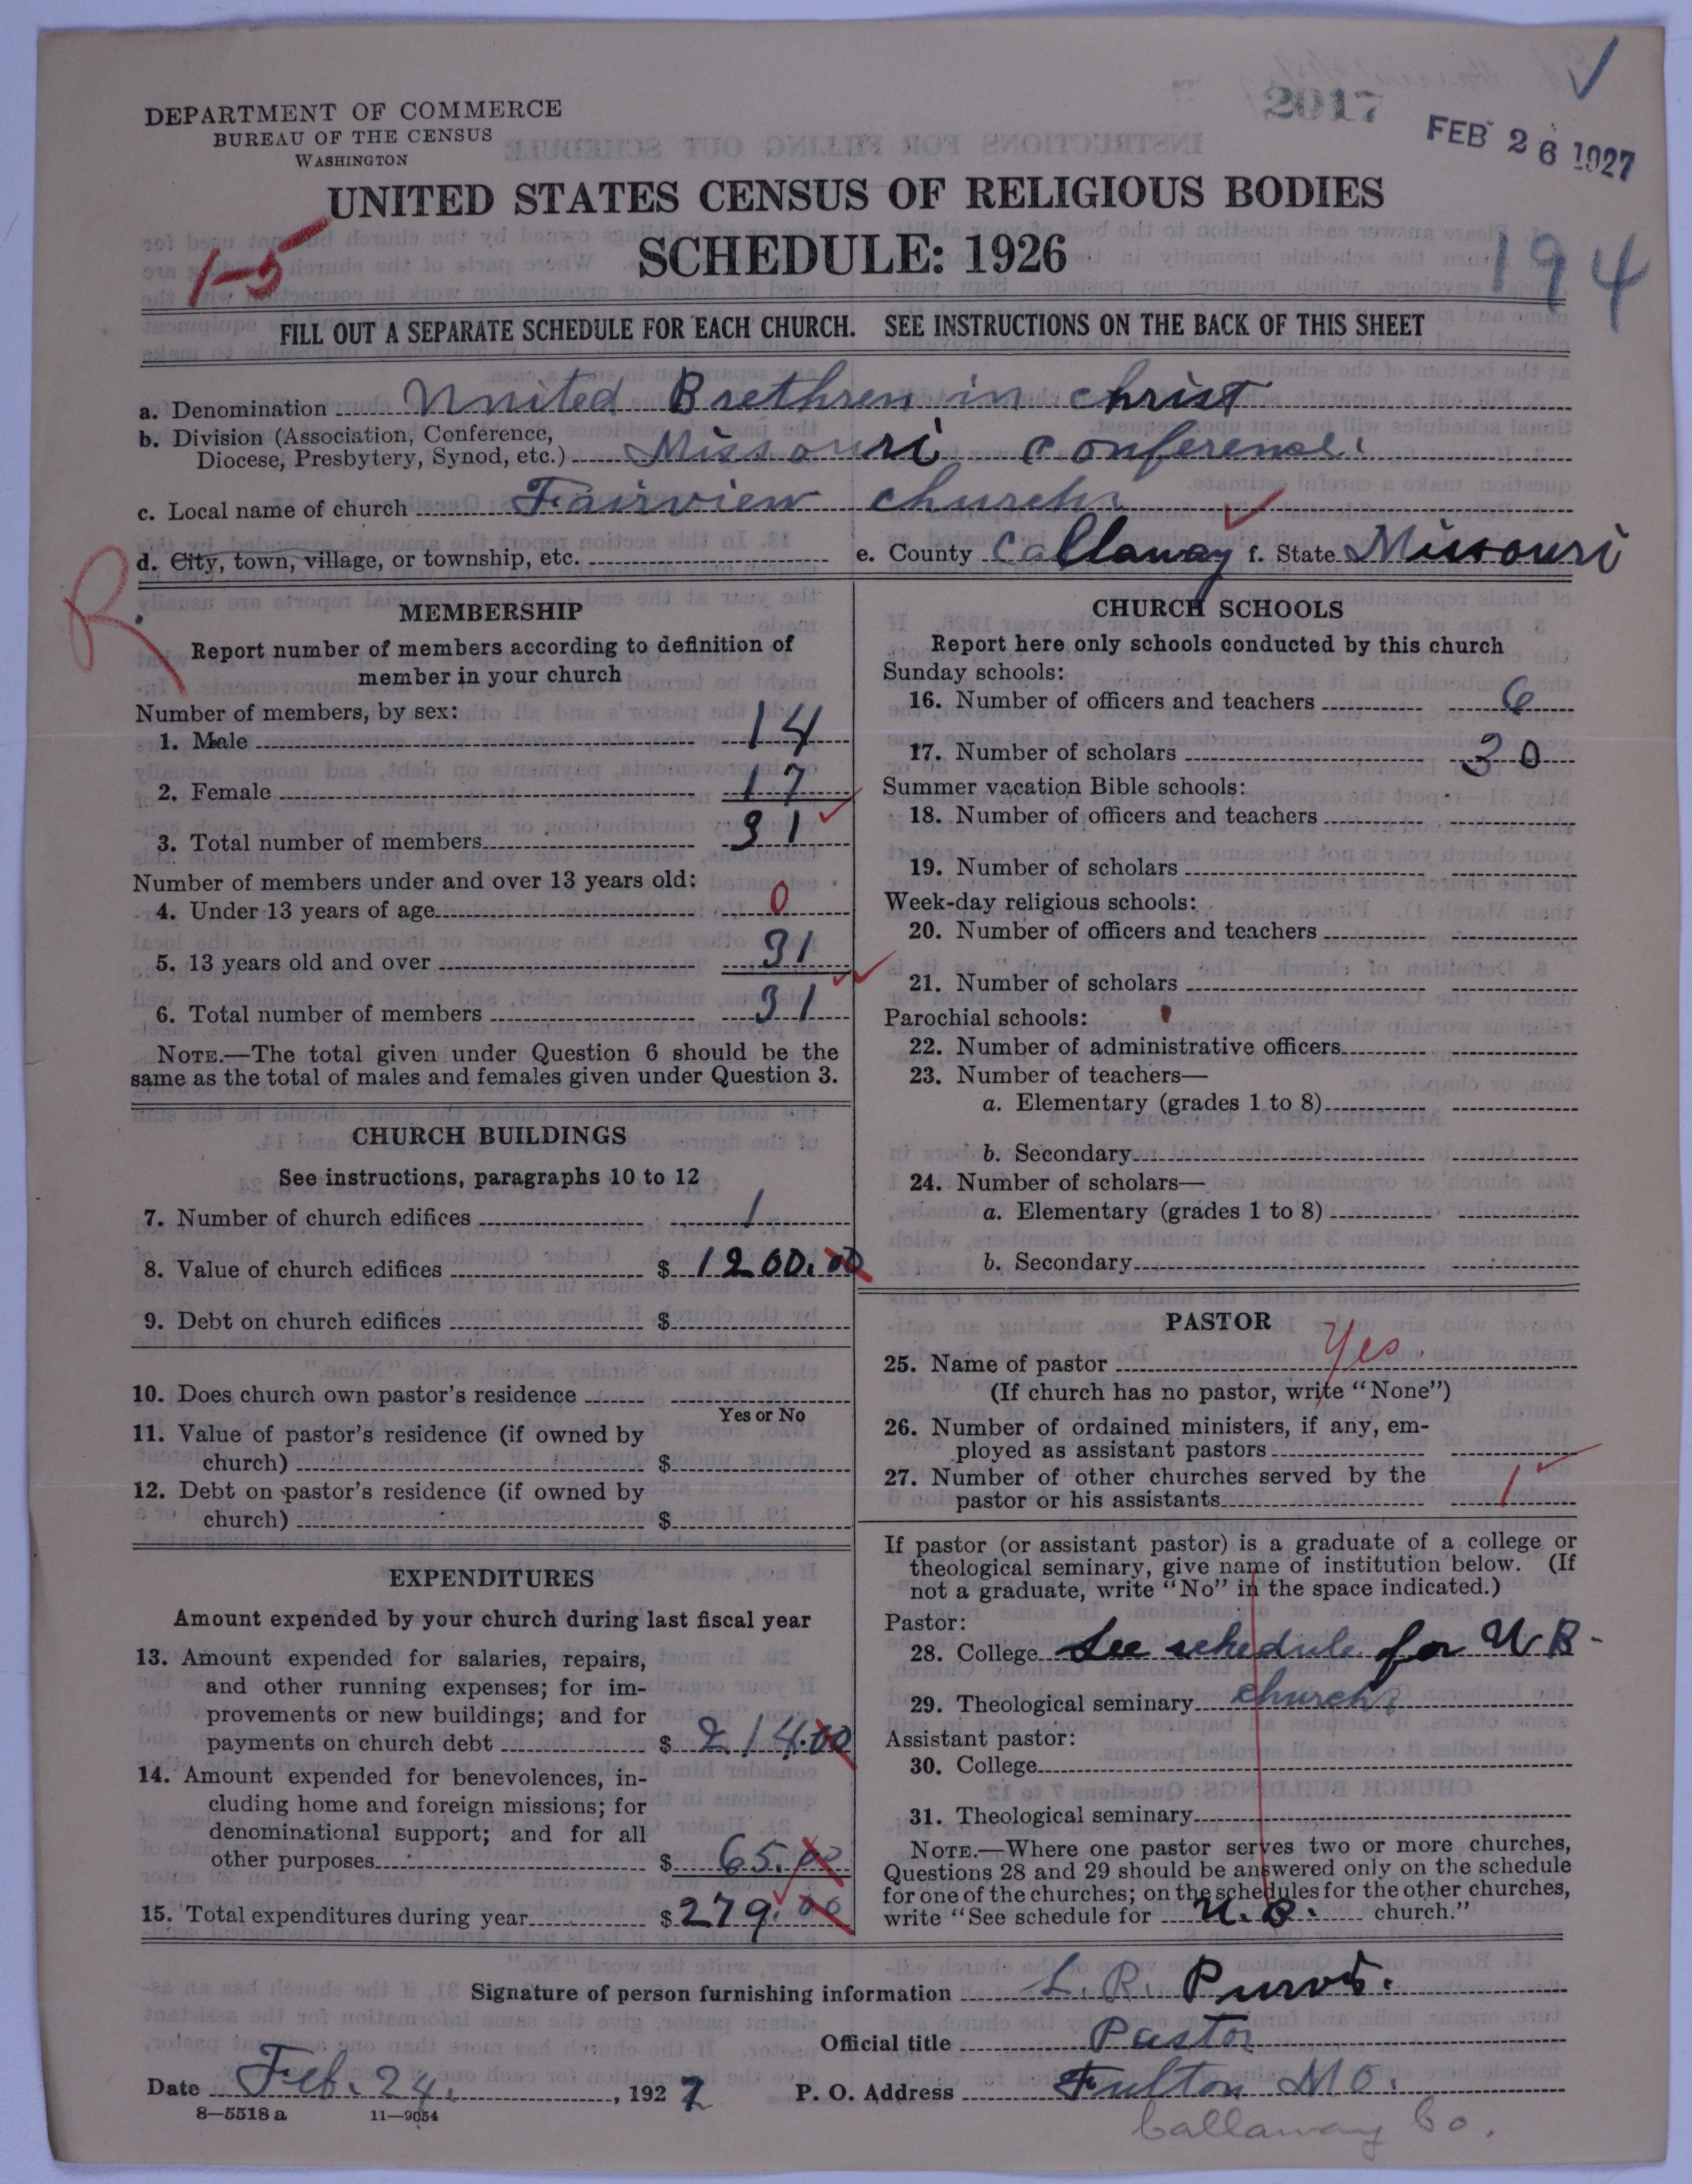 2017
FEB 26 1927
DEPARTMENT OF COMMERCE
BUREAU OF THE CENSUS
WASHINGTON
UNITED STATES CENSUS OF RELIGIOUS BODIES
SCHEDULE: 1926
1-5
194
FILL OUT A SEPARATE SCHEDULE FOR EACH CHURCH. SEE INSTRUCTIONS ON THE BACK OF THIS SHEET
a. Denomination United Brethren in Christ
b. Division (Association, Conference,
Diocese, Presbytery, Synod, etc.) Missouri Conference.
c. Local name of church Fairview church.
d. City, town, village, or township, etc. e. County Callaway f. State Missouri
R
MEMBERSHIP
Report number of members according to definition of
member in your church
Number of members, by sex:
1. Male 14
2. Female 17
3. Total number of members 31
Number of members under and over 13 years old:
4. Under 13 years of age 0
5. 13 years old and over 31
6. Total number of members 31
NOTE.—The total given under Question 6 should be the
same as the total of males and females given under Question 3.
CHURCH BUILDINGS
See instructions, paragraphs 10 to 12
7. Number of church edifices 1
8. Value of church edifices $ 1200.00
9. Debt on church edifices $
10. Does church own pastor's residence
Yes or No
11. Value of pastor's residence (if owned by
church) $
12. Debt on pastor's residence (if owned by
church) $
EXPENDITURES
Amount expended by your church during last fiscal year
13. Amount expended for salaries, repairs,
and other running expenses; for im-
provements or new buildings; and for
payments on church debt $ 214.00
14. Amount expended for benevolences, in-
cluding home and foreign missions; for
denominational support; and for all
other purposes $ 65.00
15. Total expenditures during year $ 279.00
CHURCH SCHOOLS
Report here only schools conducted by this church
Sunday schools:
16. Number of officers and teachers 6
17. Number of scholars 30
Summer vacation Bible schools:
18. Number of officers and teachers
19. Number of scholars
Week-day religious schools:
20. Number of officers and teachers
21. Number of scholars
Parochial schools:
22. Number of administrative officers
23. Number of teachers—
a. Elementary (grades 1 to 8)
b. Secondary
24. Number of scholars—
a. Elementary (grades 1 to 8)
b. Secondary
PASTOR
25. Name of pastor Yes.
(If church has no pastor, write "None")
26. Number of ordained ministers, if any, em-
ployed as assistant pastors
27. Number of other churches served by the
pastor or his assistants 1
If pastor (or assistant pastor) is a graduate of a college or
theological seminary, give name of institution below. (If
not a graduate, write "No" in the space indicated.)
Pastor:
28. College See schedule for U B-
29. Theological seminary church
Assistant pastor:
30. College
31. Theological seminary
NOTE.—Where one pastor serves two or more churches,
Questions 28 and 29 should be answered only on the schedule
for one of the churches; on the schedules for the other churches,
write "See schedule for U.B. church."
Signature of person furnishing information L. R. Purvis.
Official title Pastor
Date Feb. 24, 1927 P. O. Address Fulton Mo.
8—5518 a 11—9054
Callaway Co.